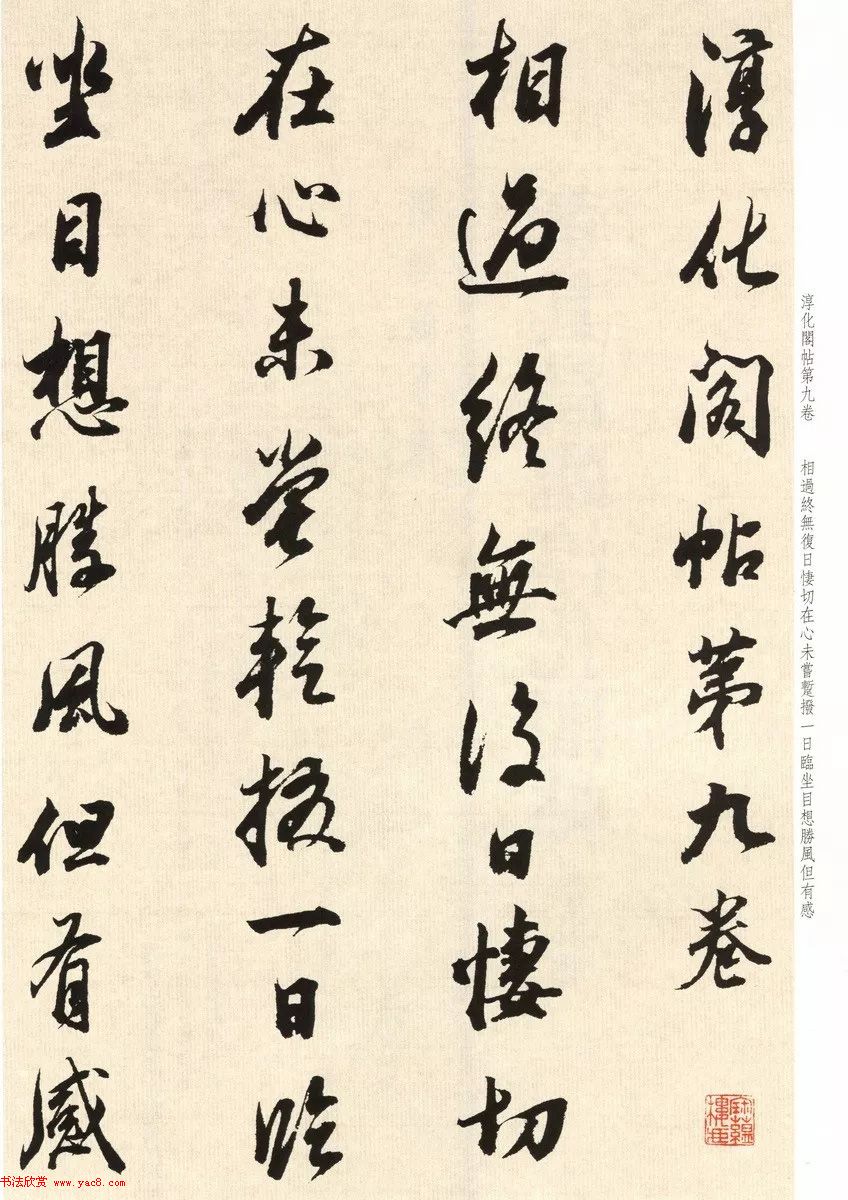 淳化閣帖第九卷
相過終無復日悽切
在心未嘗蹔撥一日臨
坐目想勝風但有感
淳化閣帖第九卷　相過終無復日悽切在心未嘗蹔撥一日臨坐目想勝風但有感
书法欣赏 www.yac8.com